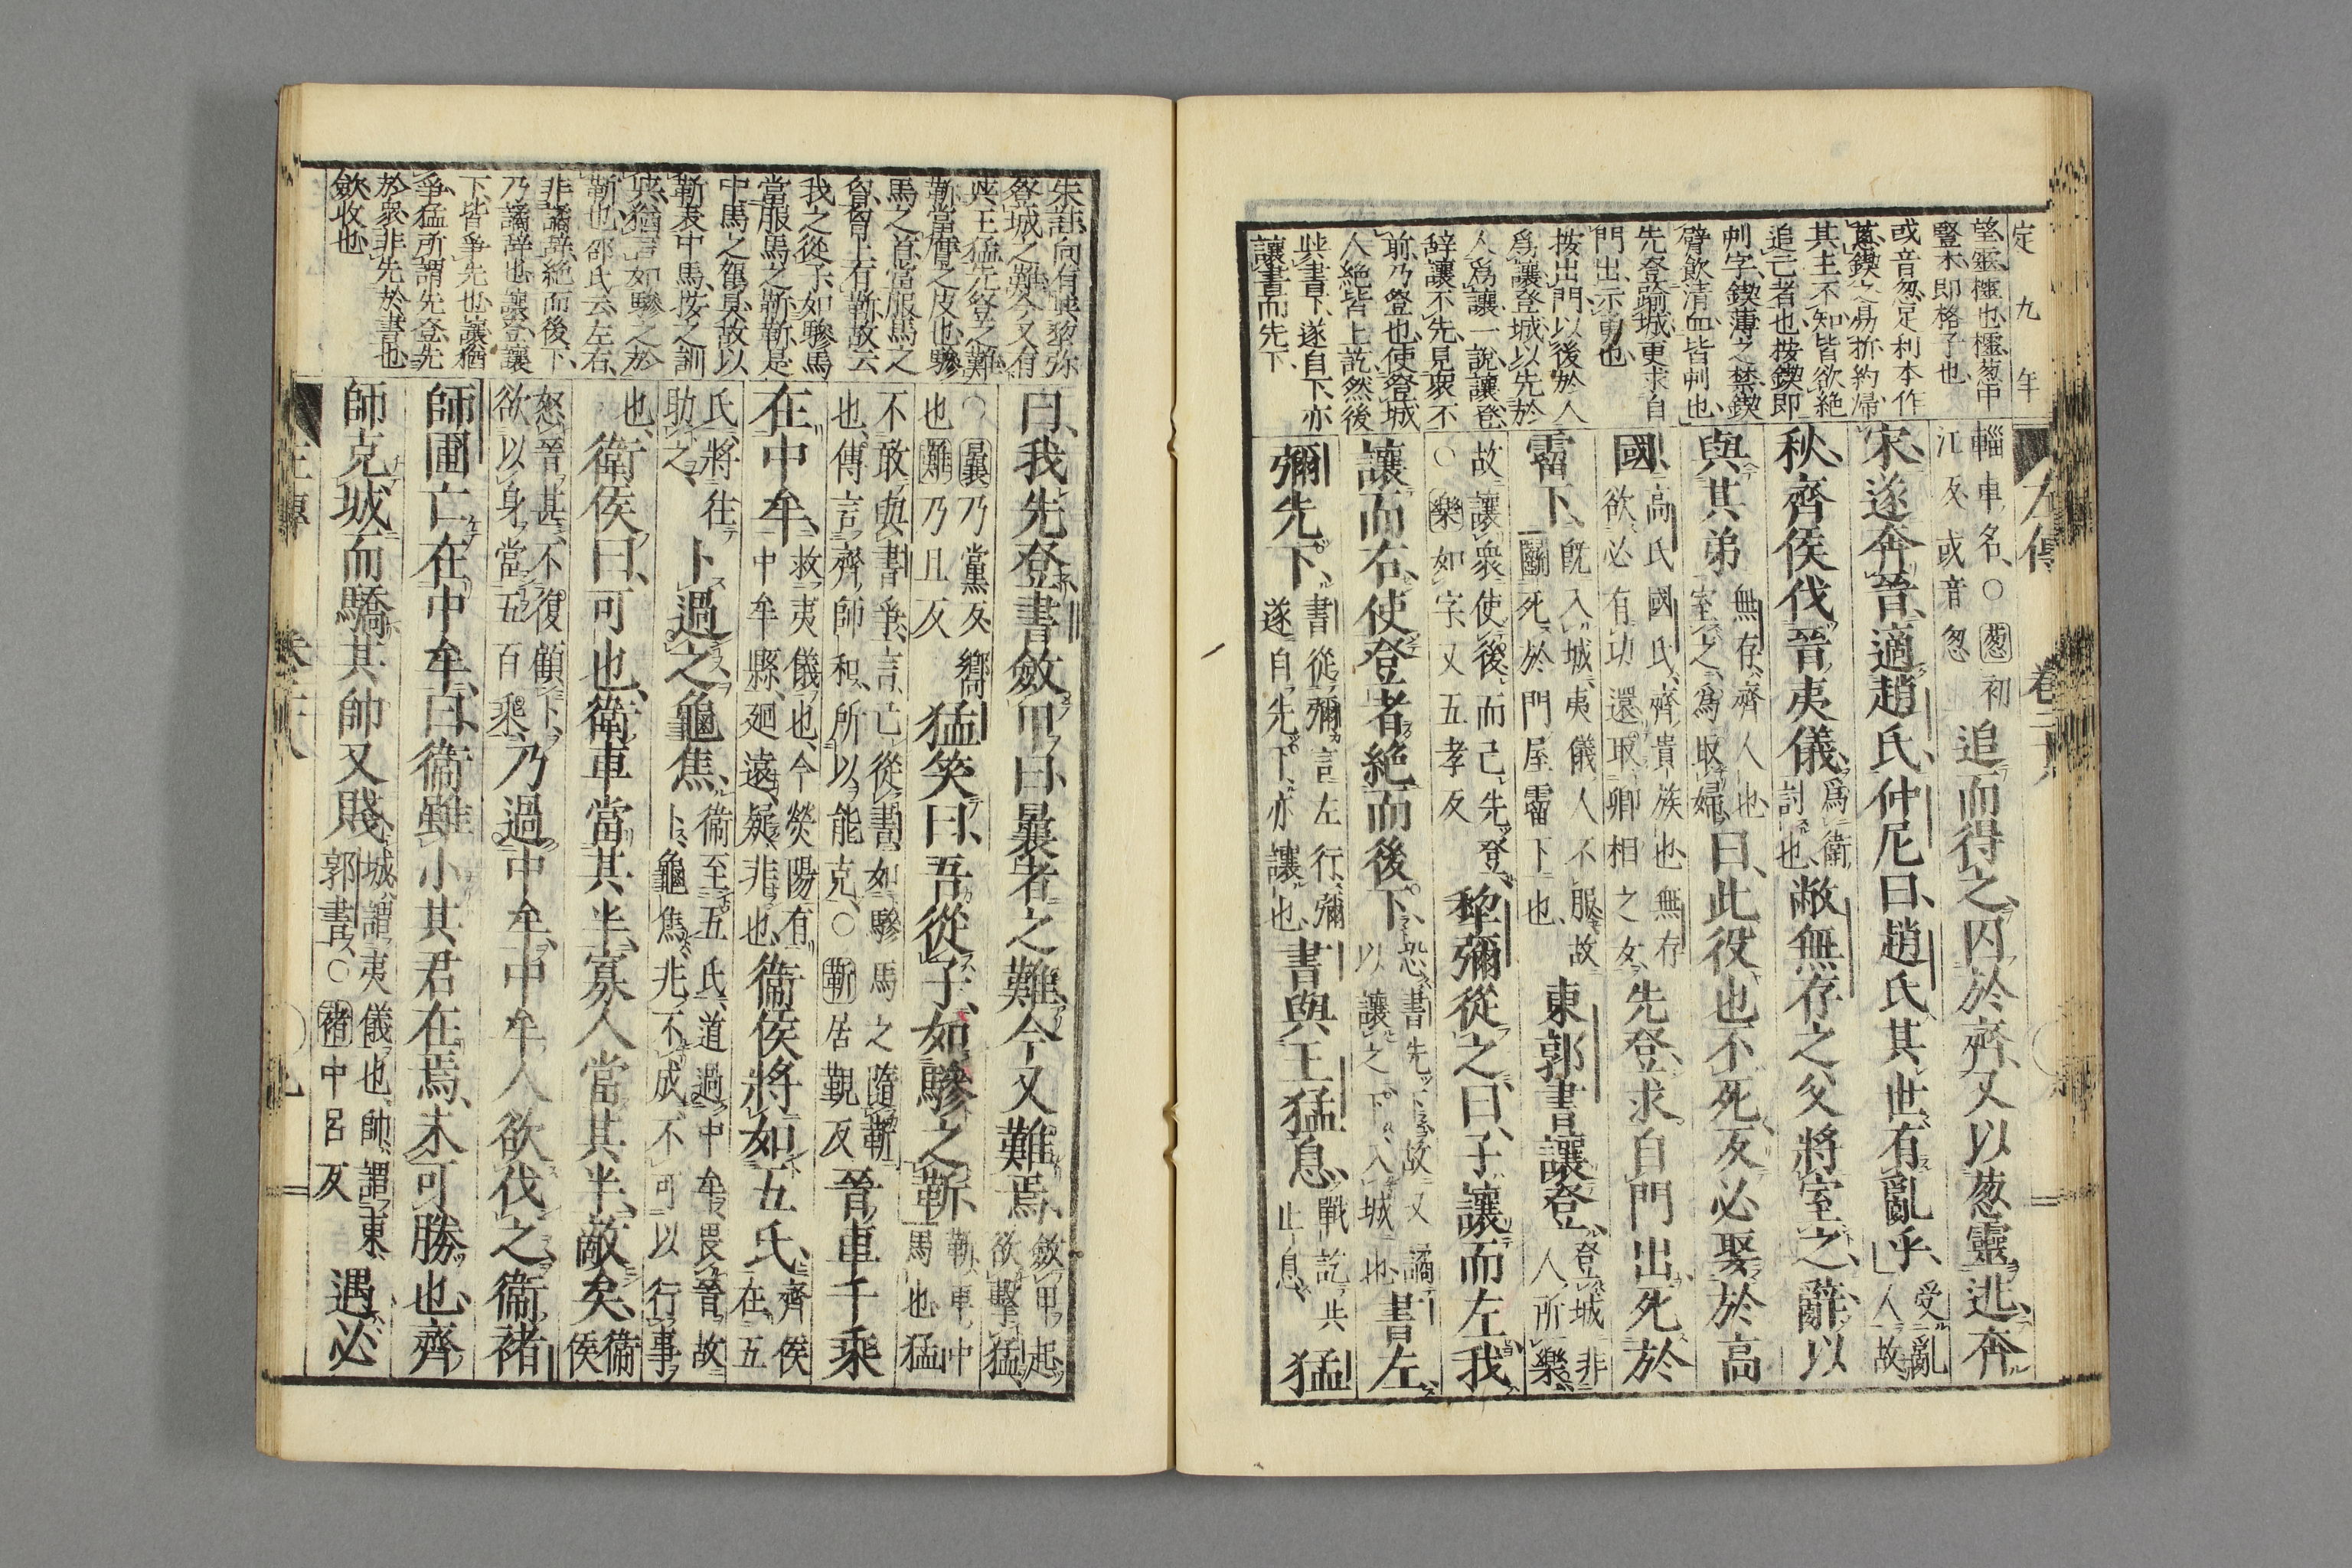 定九年
望、靈、櫺也、櫺葱中
豎木、即格子也、
或音忽、足利本作
其主、不知皆欲絕
追己者也、按鍥即
刋字、鍥薄之
臂飲清血、皆刋也、
先登、踰城、更求自
門出、示勇也、
按出門以後於人
爲讓、登城以先於
人爲讓、一說、讓登、
辭讓不先、見衆不
前、乃登也、使登城
人絕皆上訖、然後
與書下、遂自下、亦
讓書而先下、
左傳
輜車名、○葱初
江反、或音忽
追而得之、囚於齊、又以葱靈逃、奔
宋、遂奔晉、適趙氏、仲尼曰、趙氏其世有亂乎、
受亂
人故
秋、齊侯伐晉夷儀、
爲衛
討也、
敝無存之父將室之、辭、以
與其弟
無存、齊人也、
室之、爲取婦、
曰、此役也不死、反必娶於高
國、
高氏國氏、齊貴族也、無存
欲必有功、還取卿相之女、
先登、求自門出、死於
霤下、
既入城、夷儀人不服、故
鬭死於門屋霤下也、
東郭書讓登、
登城、非
人所樂
故讓衆使後、而己先登、
○樂如字、又五孝反
犂彌從之、曰、子讓而左、我
讓而右、使登者絕而後下、
恐書先下、故又譎
以讓之下入城也、
書左、
彌先下、
書從彌言左行、彌
遂自先下、亦讓也、
書與王猛息、
戰訖共
止息、
猛
朱註、向有與犂弥
登城之難、今又有
與王猛先登之難、
靳、當膺之皮也、驂
馬之首、當服馬之
胷、胷上有靳、故云
我之從子、如驂馬
當服馬之靳、靳是
中馬之駕具、故以
靳表中馬、按之訓
與、猶言如驂之於
靳也、邵氏云、左右、
非譎辞、絕而後下、
乃譎辞也、讓登讓
下、皆爭先也、讓猶
爭、猛所謂先登、先
於衆、非先於書也、
斂、收也、
曰、我先登、書斂甲曰、曩者之難、今又難焉、
斂甲起
欲擊猛、
○曩乃黨反、嚮
也、難乃旦反
猛笑曰、吾從子、如驂之靳、
靳、車中
馬也、猛
不敢與書爭、言己從書、如驂馬之隨靳
也、傳言齊師和、所以能克、○靳居覲反
晉車千乘
在中牟、
救夷儀也、今滎陽有
中牟縣、迴遠、疑非也、
衞侯將如五氏、
齊侯
在五
氏、將往
助之、
卜過之、龜焦、
衞至五氏、道過中牟、畏晉、故
卜、龜焦、兆不成、不可以行事
也、
衞侯曰、可也、衞車當其半、寡人當其半、敵矣、
衞
侯
怒晉甚、不復顧卜、
欲以身當五百乘、
乃過中牟、中牟人欲伐之、衞褚
師圃亡在中牟、曰、衞雖小、其君在焉、未可勝也、齊
師克城而驕、其帥又賤、
城、謂夷儀也、帥、謂東
郭書、○褚中呂反
遇、必